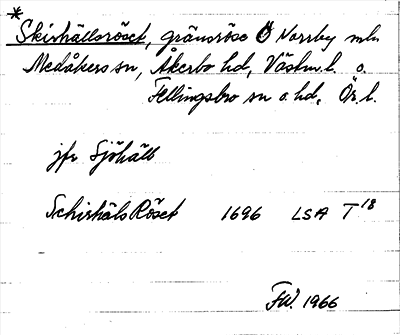 *
Skirhällsröset, gränsröse Ö Norrby mln
Medåkers sn, Åkerbo hd, Västm.l. o.
Fellingsbro sn o. hd, Ör. l.
jfr Sjöhäll
Schirhäls Röset 1696 LSA T 18
FW. 1966